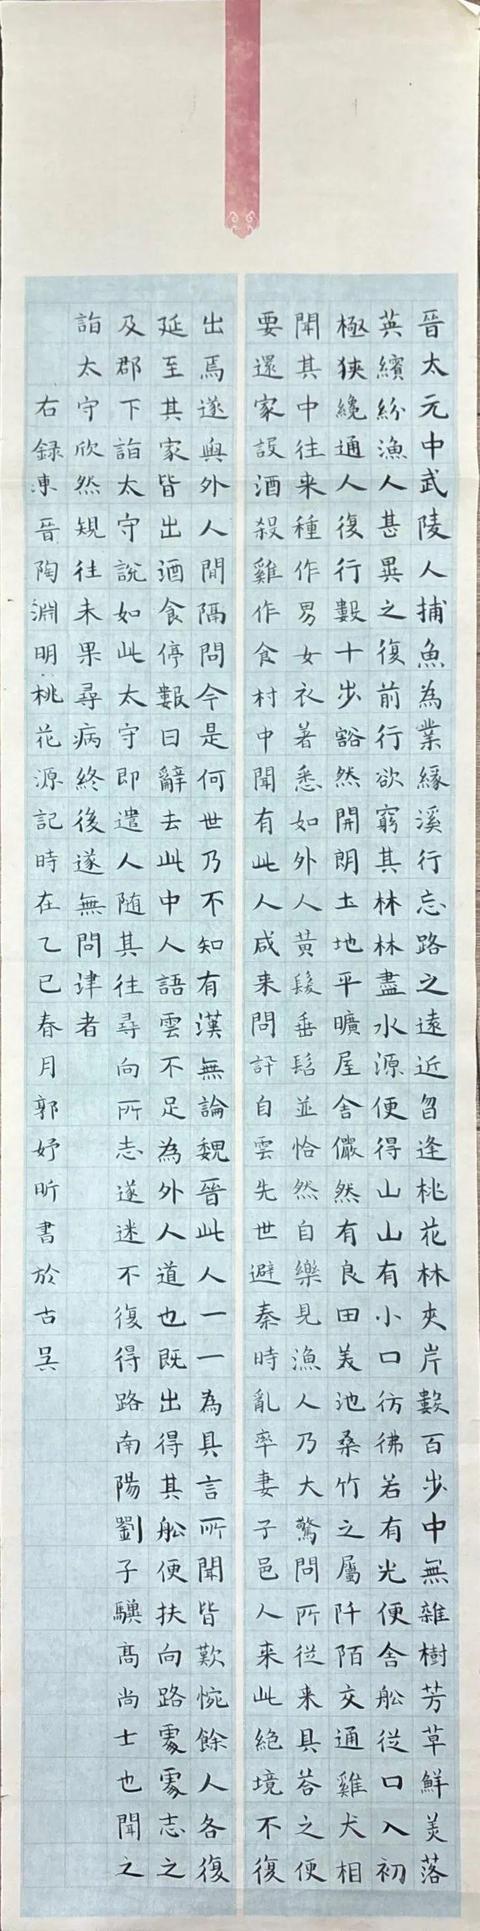 晉太元中武陵人捕魚為業緣溪行忘路之遠近忽逢桃花林夾岸數百步中無雜樹芳草鮮美落
英繽紛漁人甚異之復前行欲窮其林林盡水源便得山山有小口彷彿若有光便舍船從口入初
極狹纔通人復行數十步豁然開朗土地平曠屋舍儼然有良田美池桑竹之屬阡陌交通雞犬相
聞其中往来種作男女衣著悉如外人黃髮垂髫並怡然自樂見漁人乃大驚問所從来具荅之便
要還家設酒殺雞作食村中聞有此人咸来問訊自雲先世避秦時亂率妻子邑人来此絕境不復
出焉遂與外人間隔問今是何世乃不知有漢無論魏晉此人一一為具言所聞皆歎惋餘人各復
延至其家皆出酒食停數日辭去此中人語雲不足為外人道也既出得其船便扶向路處處志之
及郡下詣太守說如此太守即遣人随其往尋向所志遂迷不復得路南陽劉子驥高尚士也聞之
詣太守欣然規往未果尋病終後遂無問津者
右録東晉陶淵明桃花源記時在乙巳春月郭妤昕書於古吴